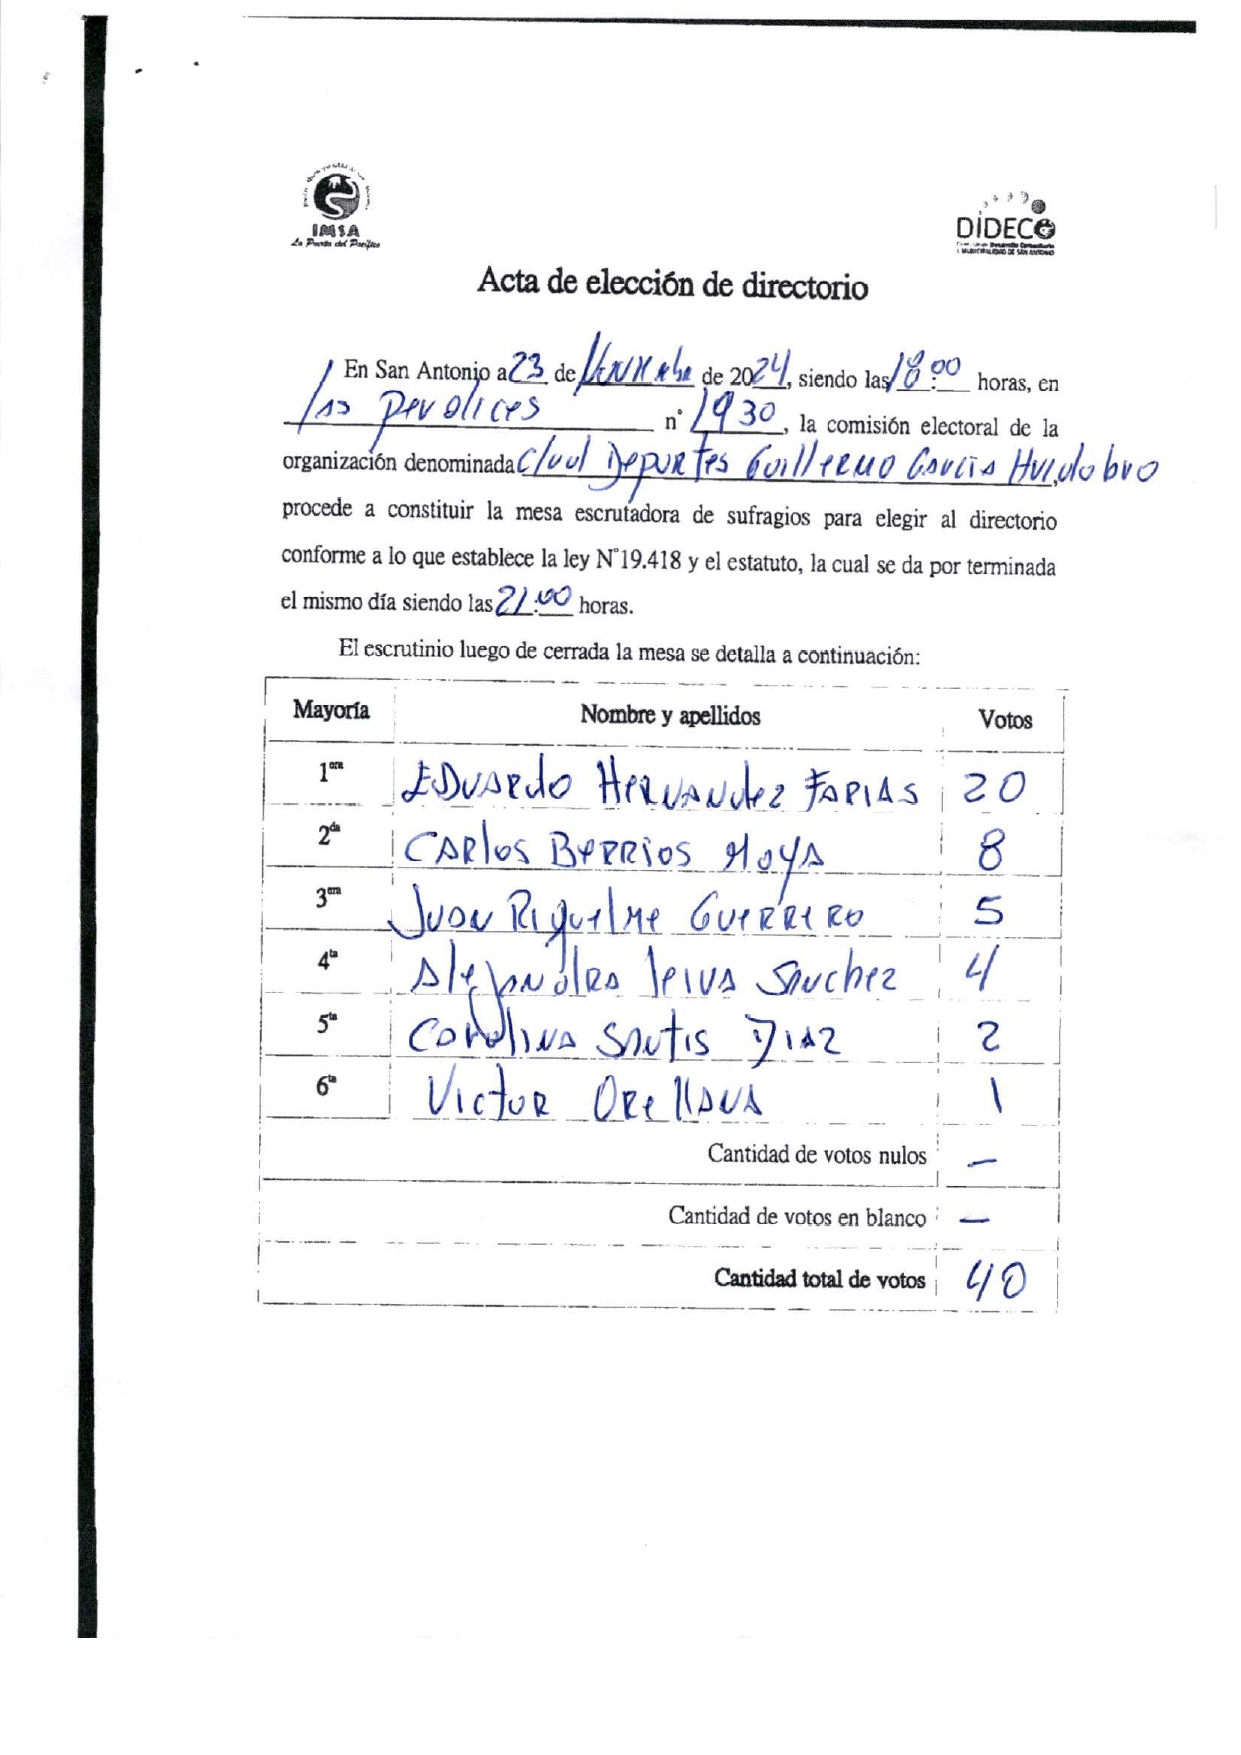 IMSA
La Puerta del Pacífico
DIDECO
MUNICIPALIDAD DE SAN ANTONIO
Acta de elección de directorio
En San Antonio a 23 de de 2024, siendo las 18:00 horas, en
n° 1930, la comisión electoral de la
organización denominada Club Deportes Guillermo Garcia Huidobro
procede a constituir la mesa escrutadora de sufragios para elegir al directorio
conforme a lo que establece la ley N°19.418 y el estatuto, la cual se da por terminada
el mismo día siendo las 21:00 horas.
El escrutinio luego de cerrada la mesa se detalla a continuación:
Mayoría Nombre y apellidos Votos
1era EDUARdo HERNANdez FARIAS 20
2da CARlos BERRIOS MOYA 8
3era JUAN RIquelme GUERRERO 5
4ta AlejANdRA leIVA SAnchez 4
5ta CAROlINA SANtis DIAZ 2
6ta VIctOR ORellANA 1
Cantidad de votos nulos —
Cantidad de votos en blanco —
Cantidad total de votos 40